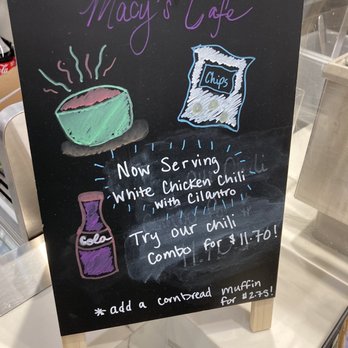 Macy's Cafe
Chips
Now Serving
White Chicken Chili
with Cilantro
Cola
Try our chili
Combo for $11.70!
* add a cornbread muffin
for $2.75!